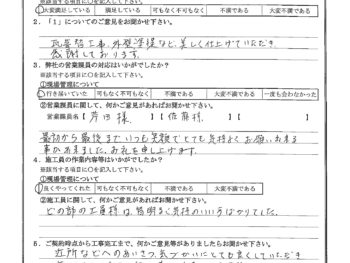 ※該当する項目に〇を記入して下さい。
大変満足している 満足している 可も不可もなく 不満である 大変不満である
2. 「1」についてのご意見をお聞かせ下さい。
瓦葺替工事、外壁塗装など、美しく仕上げていただき
感謝しております。
3. 弊社の営業課員の対応はいかがでしたか?
※該当する項目に〇を記入して下さい。
①現場管理について
行き届いていた 可も不可もなく 不満である 大変不満である 一度も会わなかった
②営業課員に関して、何かご意見があればお聞かせ下さい。
営業課員名【 様】【 佐藤様 】
最初から最後までいつも笑顔でとても気持よくお願い出来る
事が出来ました。お礼を申し上げます。
4. 施工員の作業内容等はいかがでしたか?
※該当する項目に〇を記入して下さい。
①現場管理について
良くやってくれた 可も不可もなく 不満である 大変不満である
②施工員に関して、何かご意見があればお聞かせ下さい。
どの部の工事様は皆明るい気持のいい人ばかりでした。
5. ご契約時点から工事完工まで、何かご意見等がありましたらお聞かせ下さい。
近所などへのあいさつ、気づかいにとても良くしていただき